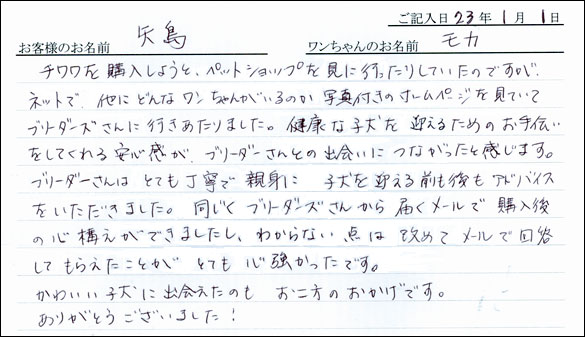 ご記入日 23年 1月 1日
お客様のお名前 矢島 ワンちゃんのお名前 モカ
チワワを購入しようと、ペットショップを見に行ったりしていたのですが、
ネットで、他にどんなワンちゃんがいるのか写真付きのホームページを見ていて
ブリーダーズさんに行きあたりました。健康な子犬を迎えるためのお手伝い
をしてくれる安心感が、ブリーダーさんとの出会いにつながったと感じます。
ブリーダーさんはとても丁寧で親身に 子犬を迎える前も後もアドバイス
をいただきました。同じくブリーダーズさんから届くメールで購入後
の心構えができましたし、わからない点は改めてメールで回答
してもらえたことがとても心強かったです。
かわいい子犬に出会えたのもお二方のおかげです。
ありがとうございました!